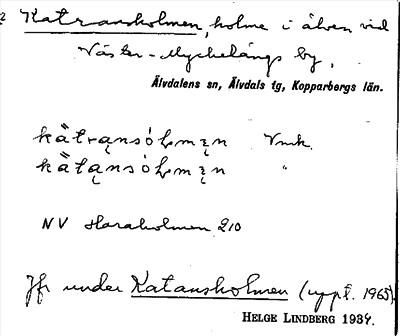 Katransholmen, holme i älven vid
Väster-Myckelängs by,
Älvdalens sn, Älvdals tg, Kopparbergs län.
kä̀trąnsòlmęn Vmk.
kä̀tąnsòlmęn "
NV Haraholmen 210
Jfr under Katansholmen (uppt. 1965).
HELGE LINDBERG 1937.